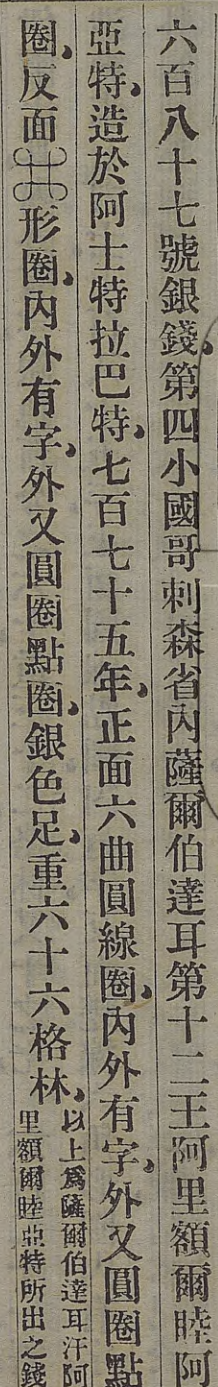 六百八十七號銀錢、第四小國哥剌森省內薩爾伯達耳第十二王阿里額爾睦阿
亞特、造於阿士特拉巴特、七百七十五年、正面六曲圓線圈、內外有字、外又圓圈點
圈、反面⌘形圈、內外有字、外又圓圈點圈、銀色足、重六十六格林、
以上爲薩爾伯達耳汗阿
里額爾睦亞特所出之錢